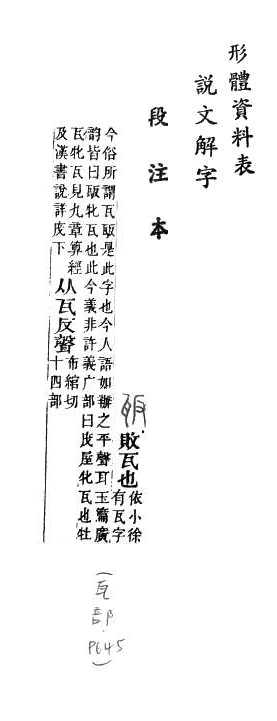 形體資料表
說文解字
段注本
瓪
敗瓦也
依小徐
有瓦字
今俗所謂瓦瓪是此字也今人語如辦之平聲耳玉篇廣
韵皆曰瓪牝瓦也此今義非許義广部曰屋牝瓦也牡
瓦牝瓦見九章算經
及漢書說詳下
从瓦反聲
布綰切
十四部
(瓦部.P645)